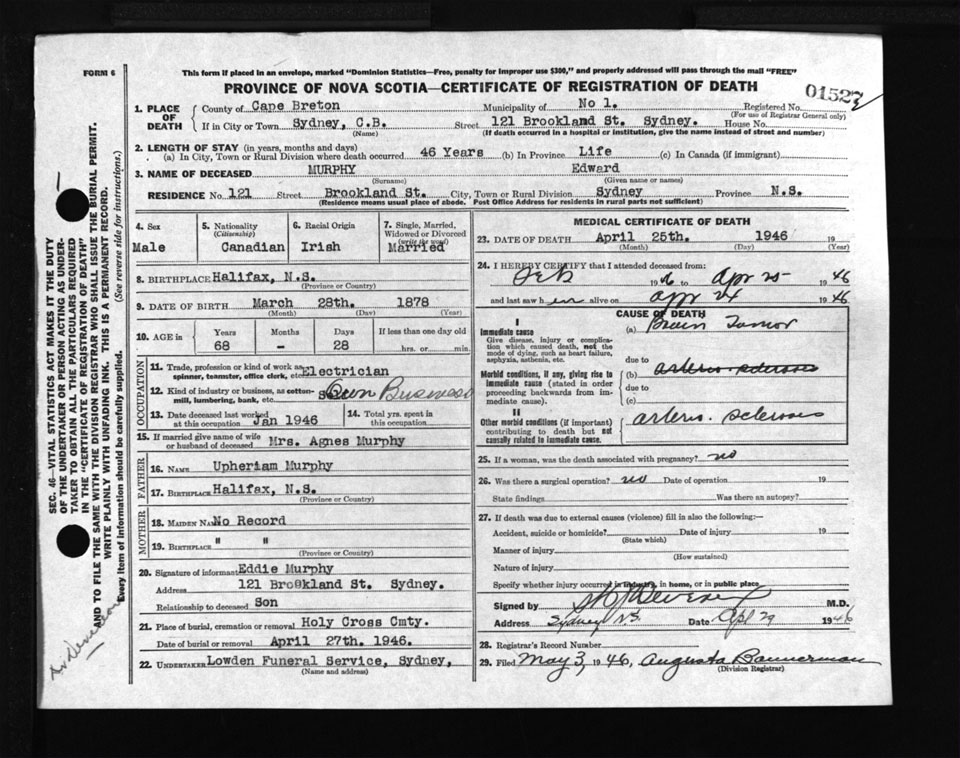 FORM 6
This form if placed in an envelope, marked "Dominion Statistics—Free, penalty for improper use $300," and properly addressed will pass through the mail "FREE"
PROVINCE OF NOVA SCOTIA—CERTIFICATE OF REGISTRATION OF DEATH
01527
1. PLACE OF DEATH
County of Cape Breton Municipality of No 1. Registered No.
(For use of Registrar General only)
If in City or Town Sydney, C.B. Street 121 Brookland St. Sydney. House No.
(Name) (If death occurred in a hospital or institution, give the name instead of street and number)
2. LENGTH OF STAY (in years, months and days)
(a) In City, Town or Rural Division where death occurred 46 Years (b) In Province Life (c) In Canada (if immigrant)
3. NAME OF DECEASED MURPHY Edward
(Surname) (Given name or names)
RESIDENCE No 121 Street Brookland St. City, Town or Rural Division Sydney Province N.S.
(Residence means usual place of abode. Post Office Address for residents in rural parts not sufficient)
4. Sex
Male
5. Nationality
(Citizenship)
Canadian
6. Racial Origin
Irish
7. Single, Married, Widowed or Divorced
(write the word)
Married
8. BIRTHPLACE Halifax, N.S.
(Province or Country)
9. DATE OF BIRTH March 28th. 1878
(Month) (Day) (Year)
10. AGE in Years Months Days If less than one day old
68 - 28 hrs. or min.
OCCUPATION
11. Trade, profession or kind of work as spinner, teamster, office clerk, etc. Electrician
12. Kind of industry or business, as cotton-mill, lumbering, bank, etc. Own Business
13. Date deceased last worked at this occupation Jan 1946
14. Total yrs. spent in this occupation
15. If married give name of wife or husband of deceased Mrs. Agnes Murphy
FATHER
16. NAME Upheriam Murphy
17. BIRTHPLACE Halifax, N.S.
(Province or Country)
MOTHER
18. MAIDEN NAME No Record
19. BIRTHPLACE " "
(Province or Country)
20. Signature of informant Eddie Murphy
Address 121 Brookland St. Sydney.
Relationship to deceased Son
21. Place of burial, cremation or removal Holy Cross Cmty.
Date of burial or removal April 27th. 1946.
22. UNDERTAKER Lowden Funeral Service, Sydney,
(Name and address)
MEDICAL CERTIFICATE OF DEATH
23. DATE OF DEATH April 25th. 1946 19
(Month) (Day) (Year)
24. I HEREBY CERTIFY that I attended deceased from:
Feb 1946 to Apr 25 1946
and last saw him alive on Apr 24 1946
CAUSE OF DEATH
I
Immediate cause
Give disease, injury or complication which caused death, not the mode of dying, such as heart failure, asphyxia, asthenia, etc.
(a) Brain Tumor
due to
Morbid conditions, if any, giving rise to immediate cause (stated in order proceeding backwards from immediate cause).
(b) arterio sclerosis
due to
(c)
II
Other morbid conditions (if important) contributing to death but not causally related to immediate cause.
arterio. sclerosis
25. If a woman, was the death associated with pregnancy? no
26. Was there a surgical operation? no Date of operation 19
State findings Was there an autopsy?
27. If death was due to external causes (violence) fill in also the following:—
Accident, suicide or homicide? Date of injury 19
(State which)
Manner of injury
(How sustained)
Nature of injury
Specify whether injury occurred in industry, in home, or in public place
Signed by M.D.
Address Sydney N.S. Date Apl 29 1946
28. Registrar's Record Number
29. Filed May 3, 1946, Augusta Bannerman
(Division Registrar)
SEC. 46—VITAL STATISTICS ACT MAKES IT THE DUTY
OF THE UNDERTAKER OR PERSON ACTING AS UNDER-
TAKER TO OBTAIN ALL THE PARTICULARS REQUIRED
IN THE "CERTIFICATE OF REGISTRATION OF DEATH"
AND TO FILE THE SAME WITH THE DIVISION REGISTRAR WHO SHALL ISSUE THE BURIAL PERMIT.
WRITE PLAINLY WITH UNFADING INK. THIS IS A PERMANENT RECORD.
Every item of information should be carefully supplied. (See reverse side for instructions.)